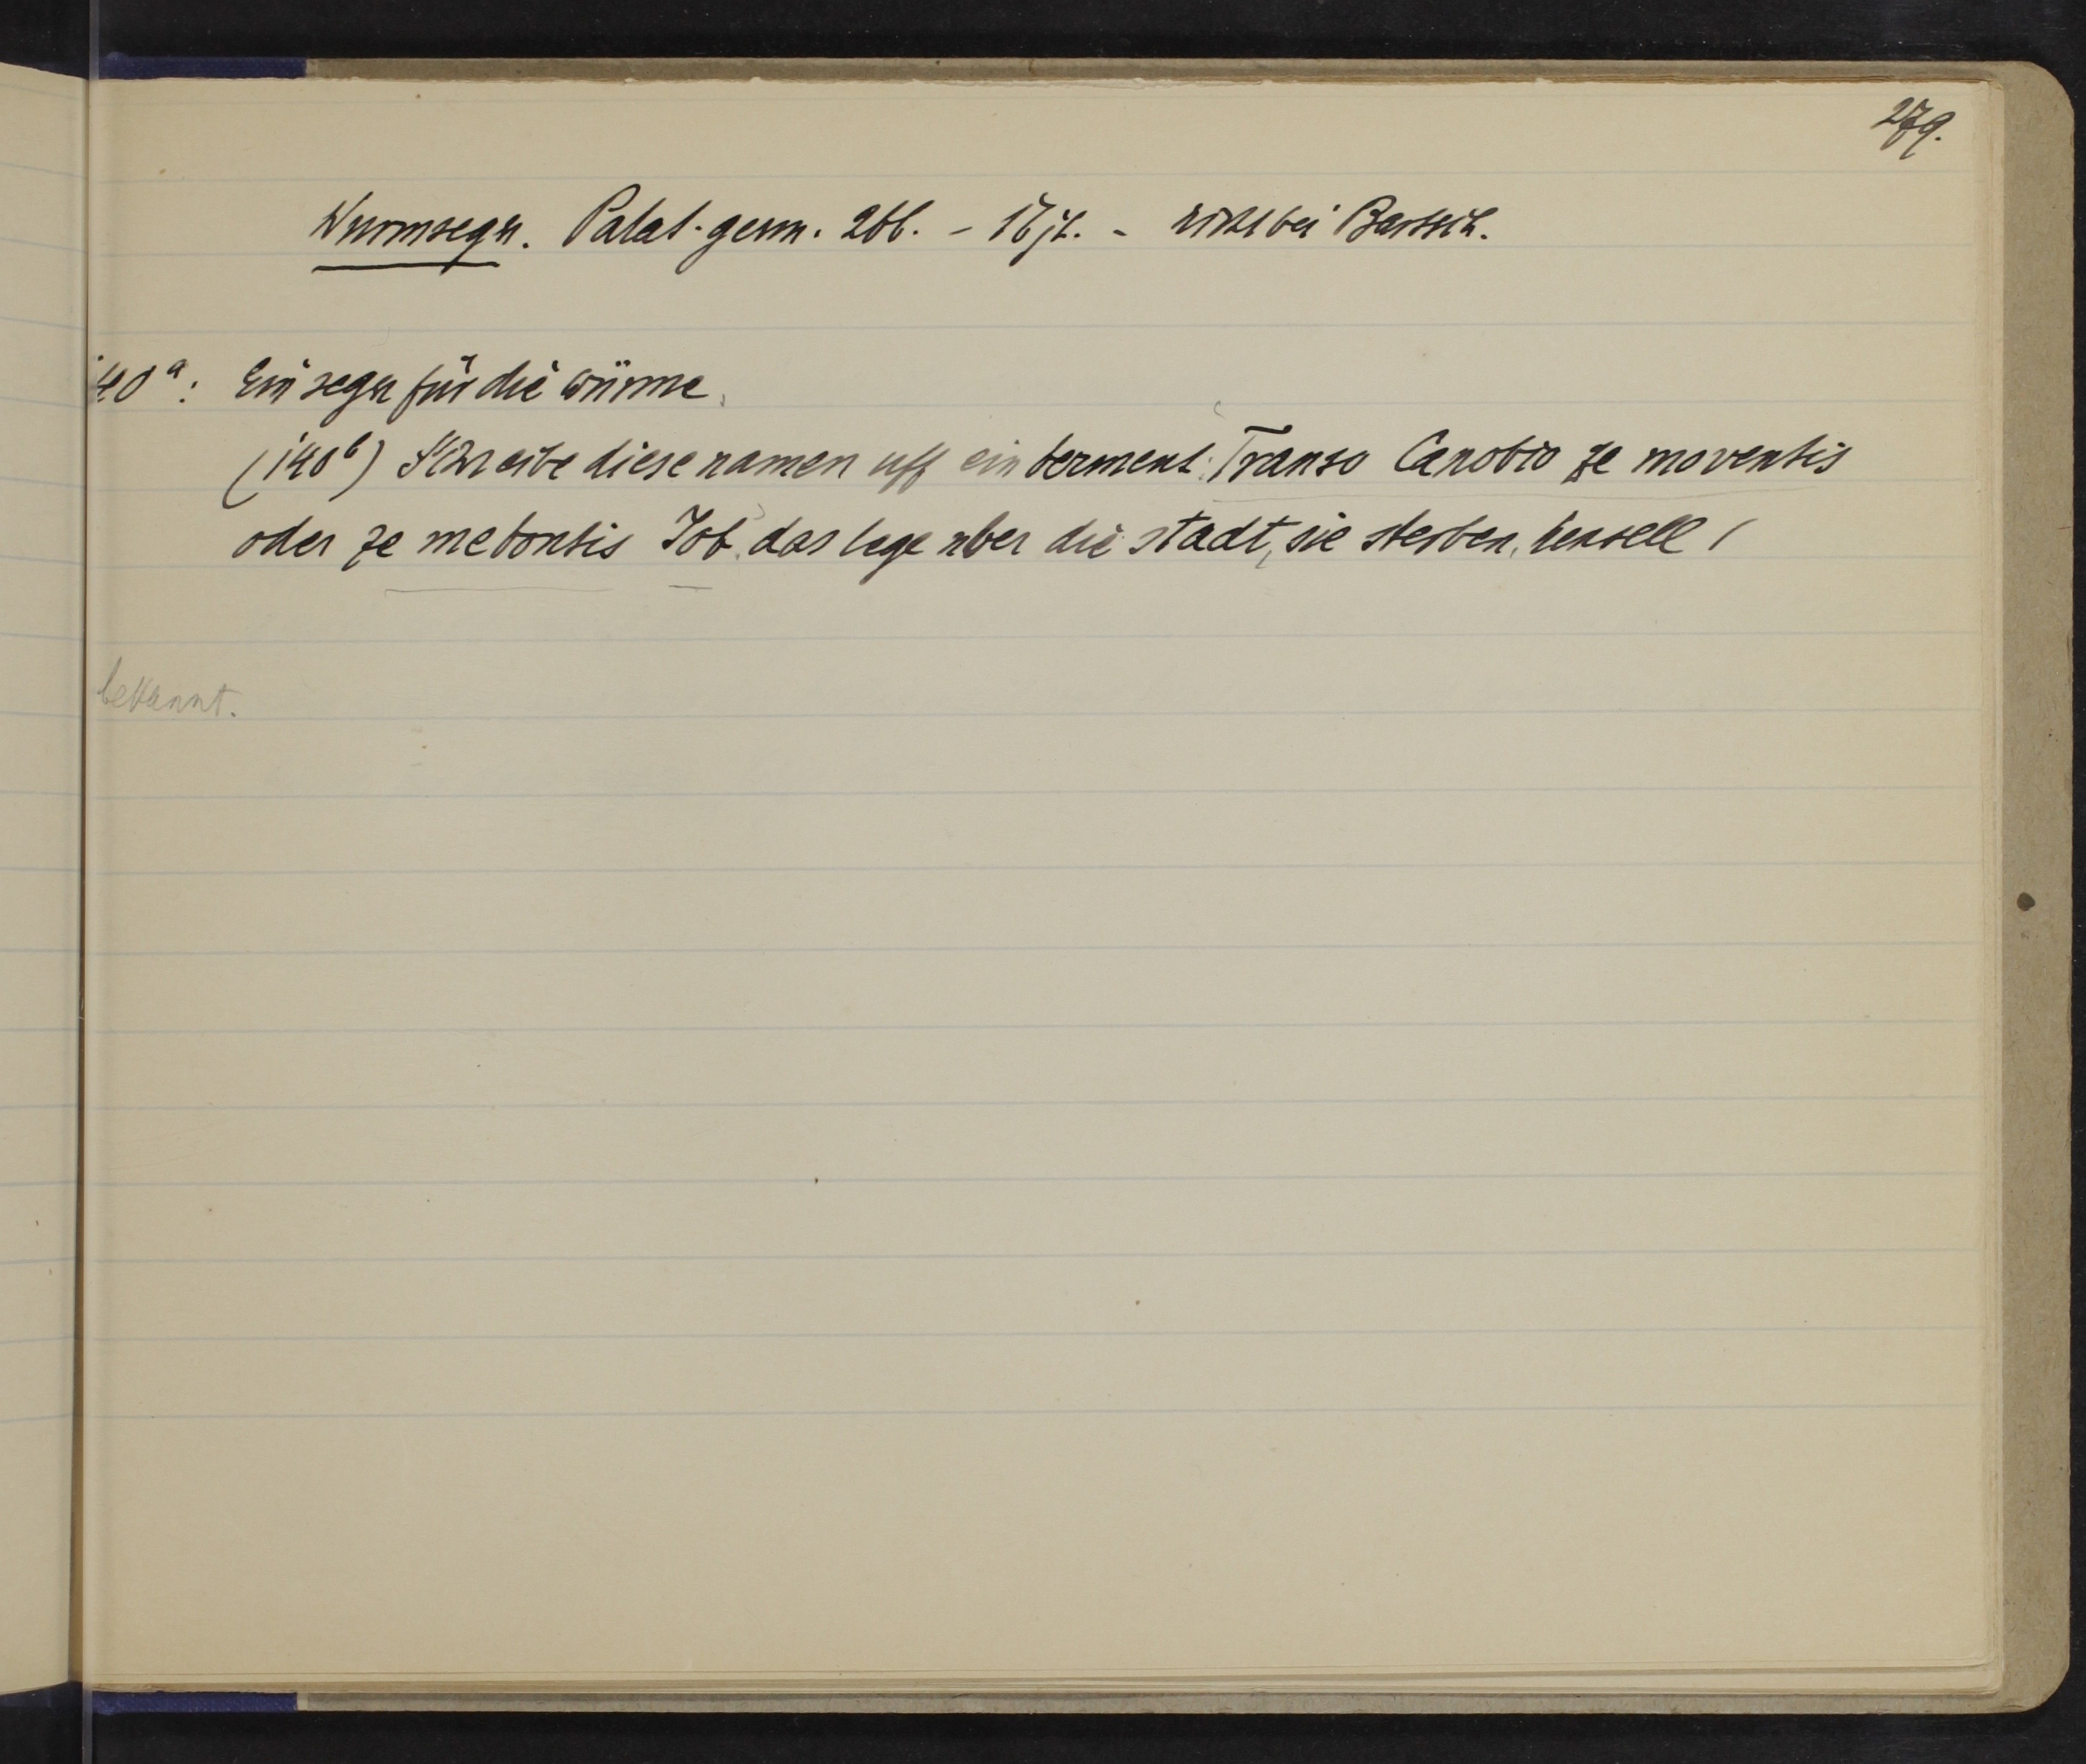 279.
Wurmsegen. Palat. germ. 266. - 16 jh. - nicht bei Bartsch.
140a: Ein segen für die würme.
(140b) Schreibe diese namen uff ein berment: Transo Canobio ze moventis
oder ze mebontis Job. das lege uber die stadt, sie sterben. 
bekannt.